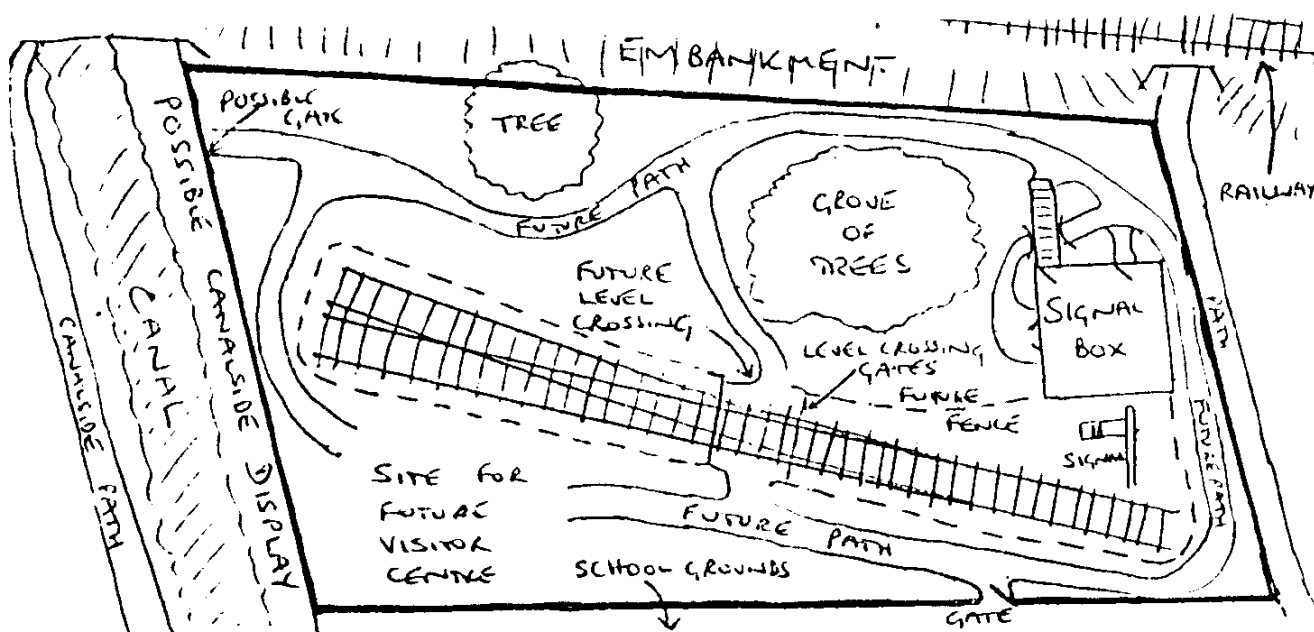 EMBANKMENT
RAILWAY
POSSIBLE
GATE
TREE
FUTURE PATH
GROVE
OF
TREES
SIGNAL
BOX
PATH
FUTURE PATH
FUTURE
LEVEL
CROSSING
LEVEL CROSSING
GATES
FUTURE
FENCE
SIGNAL
CANALSIDE PATH
CANAL
POSSIBLE CANALSIDE DISPLAY
SITE FOR
FUTURE
VISITOR
CENTRE
FUTURE PATH
SCHOOL GROUNDS
GATE